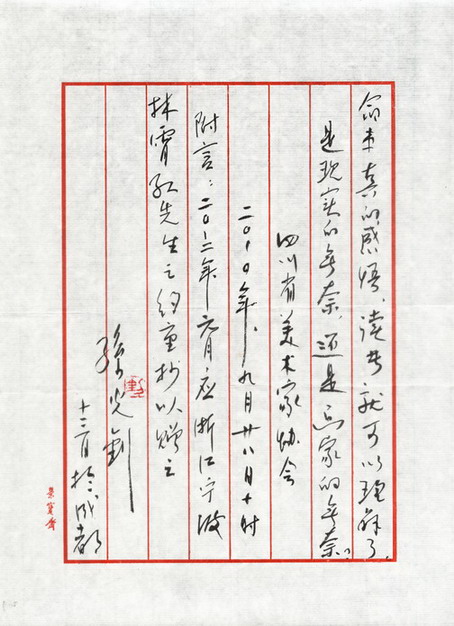 真的感悟、读者就可以理解了,
是现实的無奈、还是画家的無奈。
四川省美术家协会
二〇一〇年、九月廿八日十时
附言:二〇一二年元月应浙江宁波
林霄红先生之约重抄以赠之
十三日於成都
荣宝斋